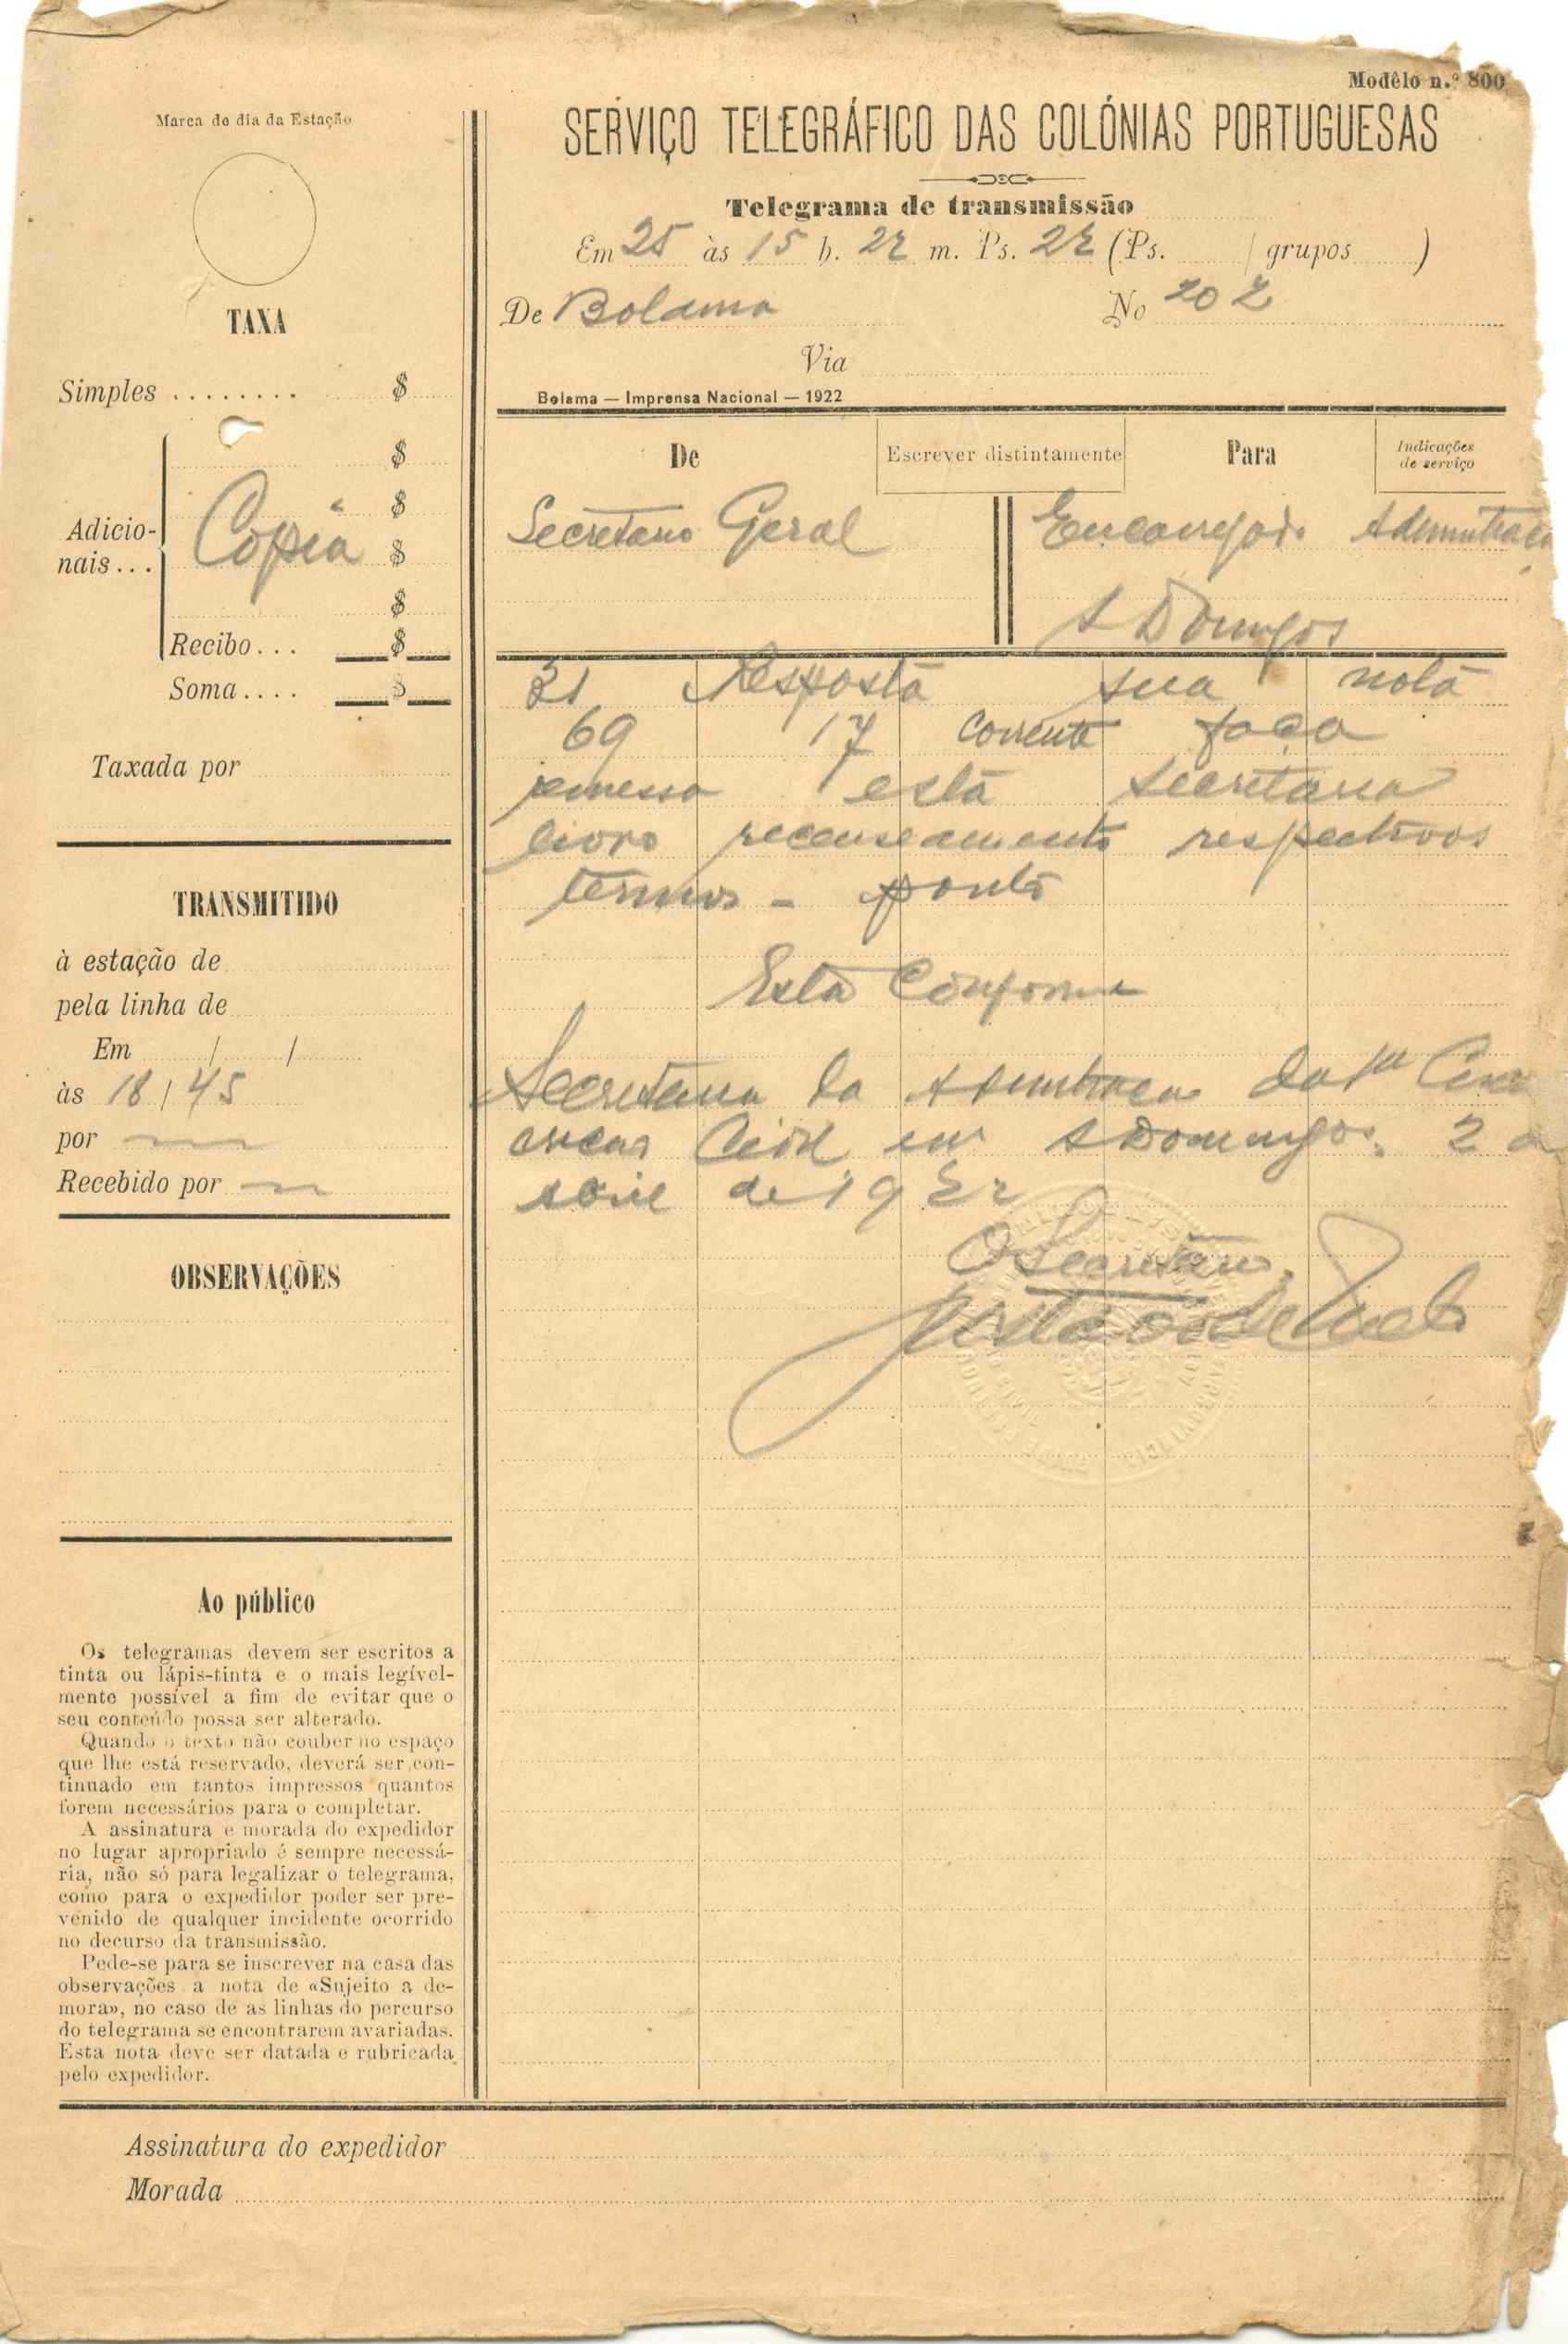 Modêlo n.º 800
Marca do dia da Estação
SERVIÇO TELEGRÁFICO DAS COLÓNIAS PORTUGUESAS
Telegrama de transmissão
Em 25 às 15 h. 22 m. Ps. 22 (Ps. / grupos )
De Bolama No 202
Via
Bolama — Imprensa Nacional — 1922
TAXA
Simples ........ $
$
$
Adicio-
nais... Copia $
$
Recibo... $
Soma.... $
Taxada por
De Escrever distintamente Para Indicações
de serviço
Secretario Geral
Encarregado
S Domingos
31 Resposta sua nota
69 17 corrente faça
remessa esta secretaria
livro recenseamento respectivos
termos - ponto
Está Conforme
Secretaria da da
Civil em S Domingos, 2
abril de 19
O Secretario,
TRANSMITIDO
à estação de
pela linha de
Em / /
às 18 / 45
por
Recebido por
OBSERVAÇÕES
Ao público
Os telegramas devem ser escritos a
tinta ou lápis-tinta e o mais legível-
mente possível a fim de evitar que o
seu conteúdo possa ser alterado.
Quando o texto não couber no espaço
que lhe está reservado, deverá ser con-
tinuado em tantos impressos quantos
forem necessários para o completar.
A assinatura e morada do expedidor
no lugar apropriado é sempre necessá-
ria, não só para legalizar o telegrama,
como para o expedidor poder ser pre-
venido de qualquer incidente ocorrido
no decurso da transmissão.
Pede-se para se inscrever na casa das
observações a nota de «Sujeito a de-
mora», no caso de as linhas do percurso
do telegrama se encontrarem avariadas.
Esta nota deve ser datada e rubricada
pelo expedidor.
Assinatura do expedidor
Morada